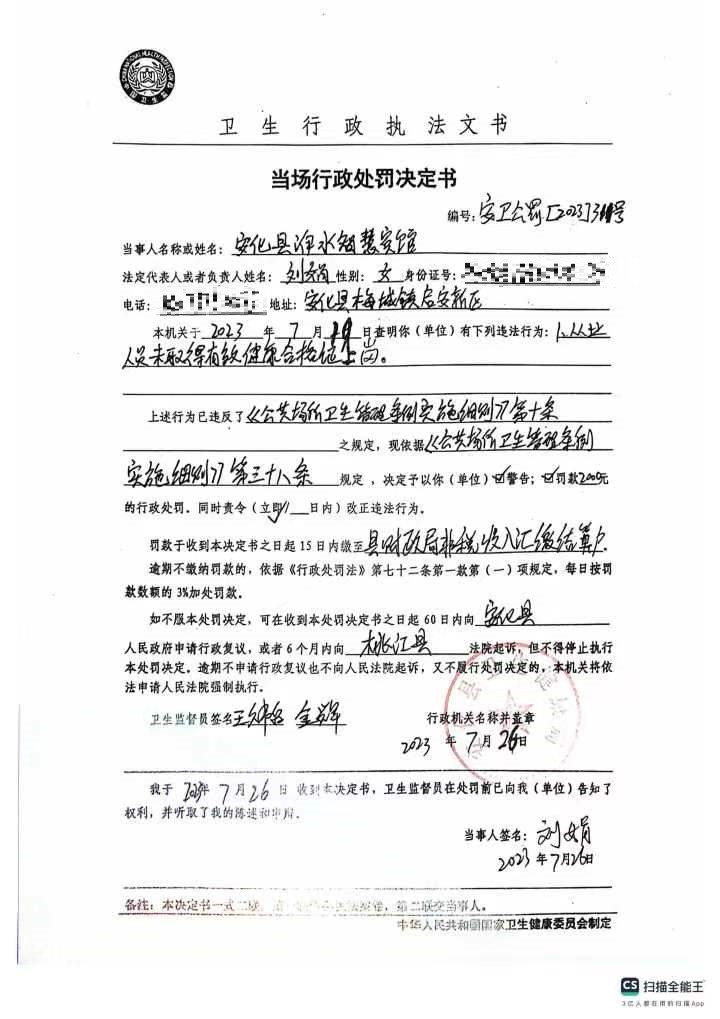 卫生行政执法文书
当场行政处罚决定书
编号:安卫公罚[2023]3 号
当事人名称或姓名:安化县净水智慧宾馆
法定代表人或者负责人姓名:刘 娟 性别:女 身份证号:
电话: 地址:安化县梅城镇启安新区
本机关于 2023 年 7 月 19 日查明你(单位)有下列违法行为:1、从业
人员未取得有效健康合格证上岗。
上述行为已违反了《公共场所卫生管理条例实施细则》第十条
之规定,现依据《公共场所卫生管理条例
实施细则》第三十八条 规定,决定予以你(单位)☑警告;☑罚款200元
的行政处罚。同时责令(立即/ 日内)改正违法行为。
罚款于收到本决定书之日起 15 日内缴至县财政局非税收入汇缴结算户.
逾期不缴纳罚款的,依据《行政处罚法》第七十二条第一款第(一)项规定,每日按罚
款数额的 3%加处罚款。
如不服本处罚决定,可在收到本处罚决定书之日起 60 日内向 安化县
人民政府申请行政复议,或者 6 个月内向 桃江县 法院起诉,但不得停止执行
本处罚决定。逾期不申请行政复议也不向人民法院起诉,又不履行处罚决定的,本机关将依
法申请人民法院强制执行。
卫生监督员签名 王 行政机关名称并盖章
2023 年 7 月 26 日
我于 2023年 7 月 26 日 收到本决定书,卫生监督员在处罚前已向我(单位)告知了
权利,并听取了我的陈述和申辩。
当事人签名:刘 娟
2023 年 7 月 26 日
备注:本决定书一式二联, 第二联交当事人。
中华人民共和国国家卫生健康委员会制定
CS 扫描全能王
3亿人都在用的扫描App